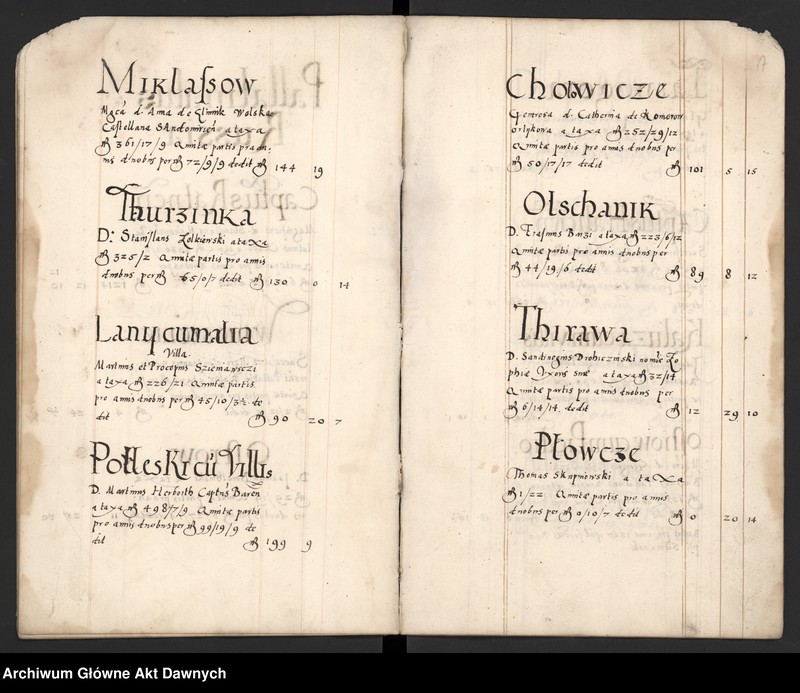 Miklaſsow
Mgcá d. Anna de Wolska
Caſtellana Sandomirień a taxa
361/17/9 Quintæ partis pro an:
nis duobus per 72/9/9 dedit 144 19
Thurzinka
D. Staniſlaus Zolkiewski a taxa
325/2 Quintæ partis pro annis
duobus per 65/0/7 dedit 130 0 14
Villa.
Martinus et Procopius
a taxa 226/21 Quintæ partis
pro annis duobus per 45/10/3½ de
dit 90 20 7
Villis
D. Martinus Herborth Capt
a taxa 49877/9 Quintæ partis
pro annis duobus per 99/19/9 de
dit 199 9
17
Chowicze
Generosa d. Catherina de Komorow
Orlykowa a taxa 252/29/12
Quintæ partis pro annis duobus per
50/17/17 dedit 101 5 15
Olschanik
D. Eraſmus a taxa 223/6/12
Quintæ partis pro annis duobus per
44/19/6 dedit 89 8 12
Thirawa
D. Drohiczinski nomíe Zo
phiæ Uxoris suæ a taxa 32/14
Quintæ partis pro annis duobus per
6/14/14. dedit 12 29 10
Płowcze
Thomas a taxa
1/22 Quintæ partis pro annis
duobus per 0/10/7 dedit 0 20 14
Archiwum Główne Akt Dawnych